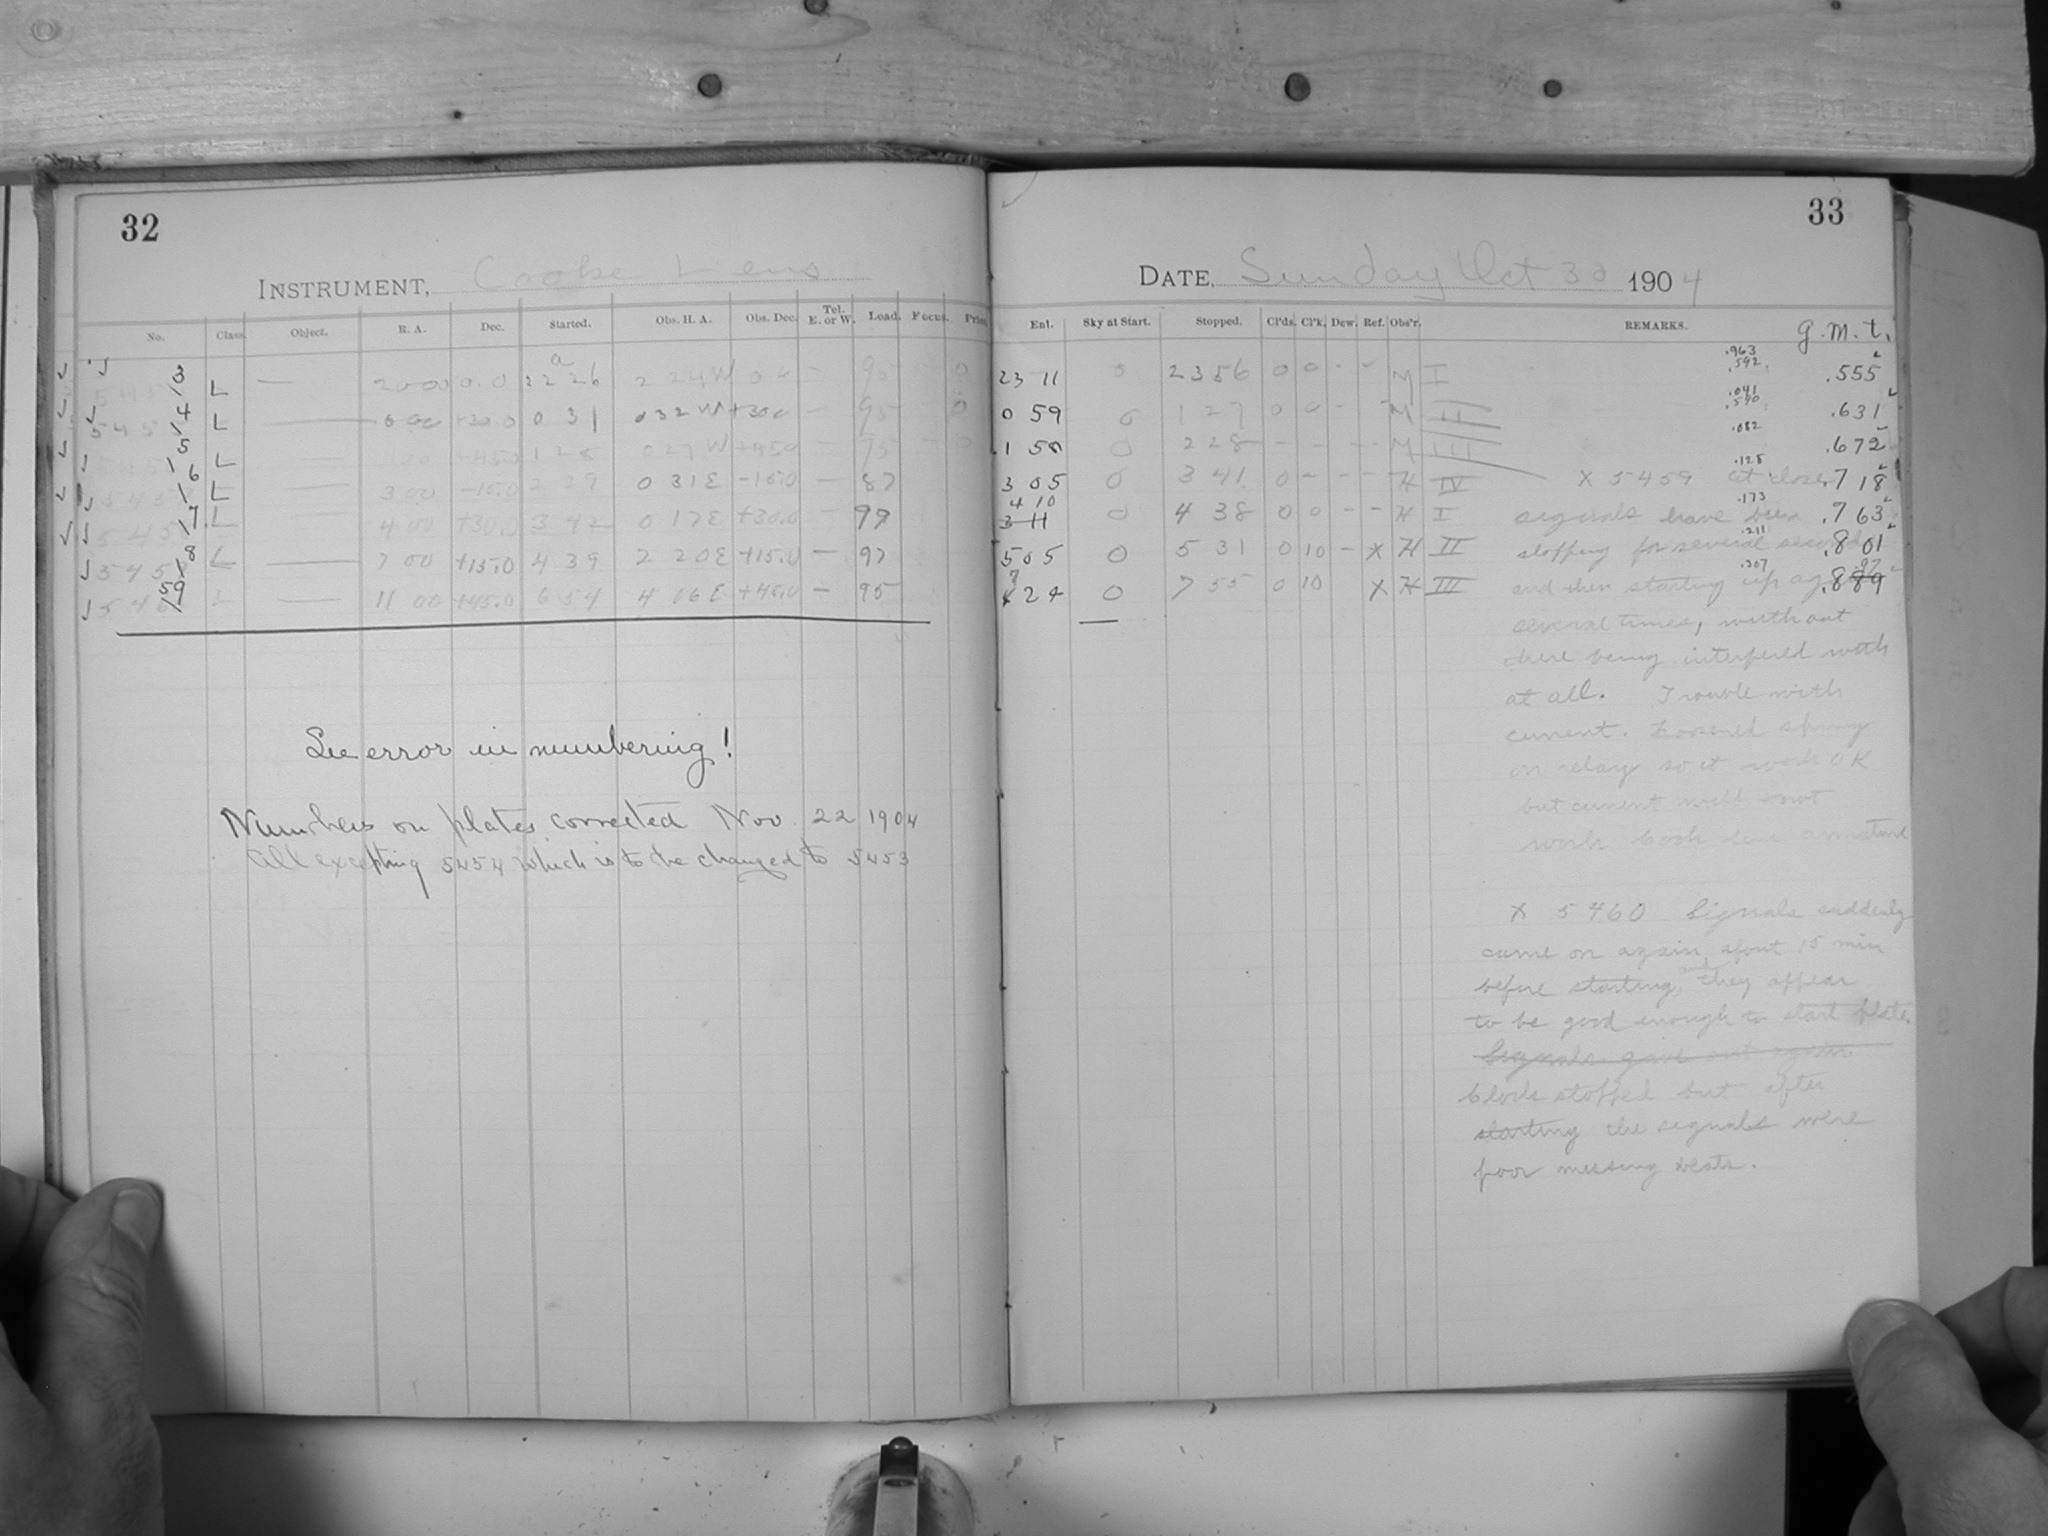 32
INSTRUMENT, Cooke Lens
No. Class. Object. R. A. Dec. Started. Obs. H. A. Obs. Dec. Tel. E. or W. Load. Focus. Prism.
3 L — 20 00 0.0 22 26 2 24 W 0.0 — 95 0
545 4 L — 0 00 +30.0 0 31 0 32 W +30.0 — 95 0
5 L — 1 00 +45.0 1 28 0 27 W +45.0 — 95 0
545 6 L — 3 00 -15.0 2 29 0 31 E -15.0 — 87
545 7 L — 4 00 +30.0 3 42 0 17 E +30.0 — 97
545 8 L — 7 00 +15.0 4 39 2 20 E +15.0 — 97
546 59 L — 11 00 +45.0 6 54 4 06 E +45.0 — 95
See error in numbering!
Numbers on plates corrected Nov. 22 1904
all excepting 5454 which is to be changed to 5453
33
DATE, Sunday Oct 30 1904
Ent. Sky at Start. Stopped. Cl'ds. Cl'k. Dew. Ref. Obs'r. REMARKS. G.M.T.
23 11 0 23 56 0 0 - - M I .963 .592 .555
0 59 0 1 27 0 0 - - M II .041 .590 .631
1 58 0 2 28 - - - - M III .082 .672
3 05 0 3 41 0 - - - H IV X 5459 at close .128 .718
4 10 3 11 0 4 38 0 0 - - H I signals have been .173 .763
5 05 0 5 31 0 10 - X H II stopping for several seconds .211 .801
7 24 0 7 55 0 10 X H III and then starting up ag .307 .889
several times, without
there being interfered with
at all. Trouble with
current. Loosened spring
on relay so it works OK
but current will not
work Cooke lens armature
X 5460 Signals suddenly
came on again about 15 min
before starting, and they appear
to be good enough to start plate.
Signals gave out again
Clock stopped but after
starting the signals were
poor missing beats.